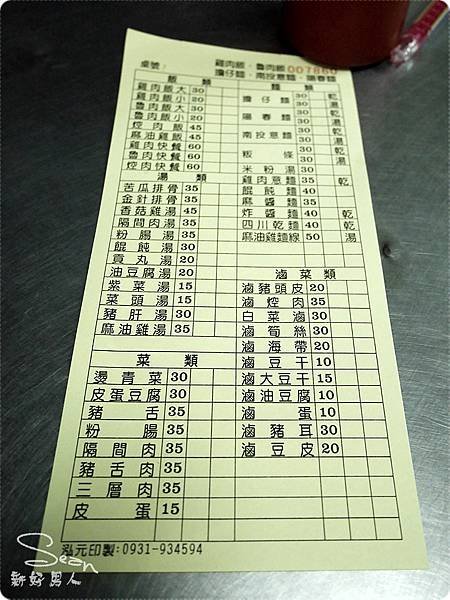 桌號: 雞肉飯・魯肉飯 007860
擔仔麵・南投意麵・陽春麵
飯 類
雞肉飯大 30
雞肉飯小 20
魯肉飯大 30
魯肉飯小 20
焢肉飯 45
麻油雞飯 45
雞肉快餐 60
魯肉快餐 60
焢肉快餐 60
湯 類
苦瓜排骨 35
金針排骨 35
香菇雞湯 45
隔間肉湯 35
粉腸湯 35
餛飩湯 30
貢丸湯 20
油豆腐湯 20
紫菜湯 15
菜頭湯 15
豬肝湯 30
麻油雞湯 35
菜 類
燙青菜 30
皮蛋豆腐 30
豬舌 35
粉腸 35
隔間肉 35
豬舌肉 35
三層肉 35
皮蛋 15
麵 類
擔仔麵 30 乾 湯
陽春麵 30 乾 湯
南投意麵 30 乾 湯
粄條 30 乾 湯
米粉湯 30
雞肉意麵 35 乾
餛飩麵 40
麻醬麵 35
炸醬麵 40 乾
四川乾麵 40 乾
麻油雞麵線 50 湯
滷菜類
滷豬頭皮 20
滷焢肉 35
白菜滷 30
滷筍絲 30
滷海帶 20
滷豆干 10
滷大豆干 15
滷油豆腐 10
滷蛋 10
滷豬耳 30
滷豆皮 20
泓元印製:0931-934594
Sean
新好男人